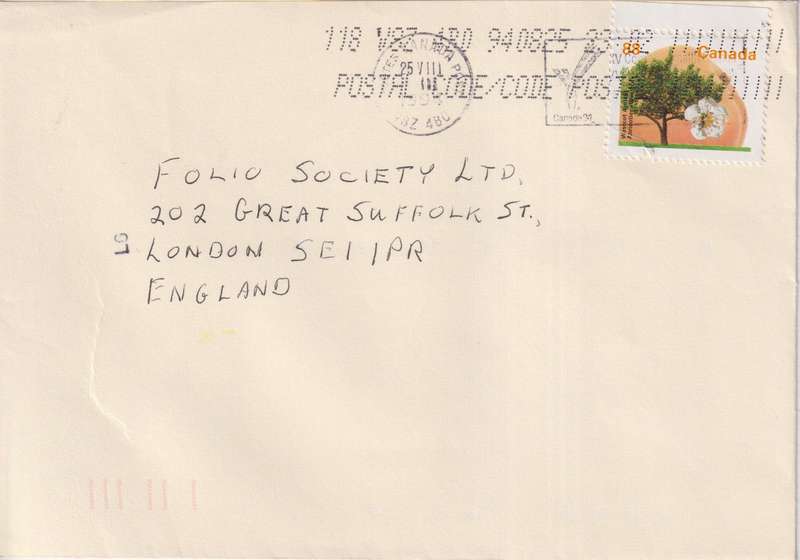 118 V8Z 4B0 940825
POSTAL CODE/CODE POSTAL
CANADA
25 VIII
1994
V8Z 4B0
Canada
88
Canada
FOLIO SOCIETY LTD,
202 GREAT SUFFOLK ST.,
LONDON SE1 1PR
ENGLAND